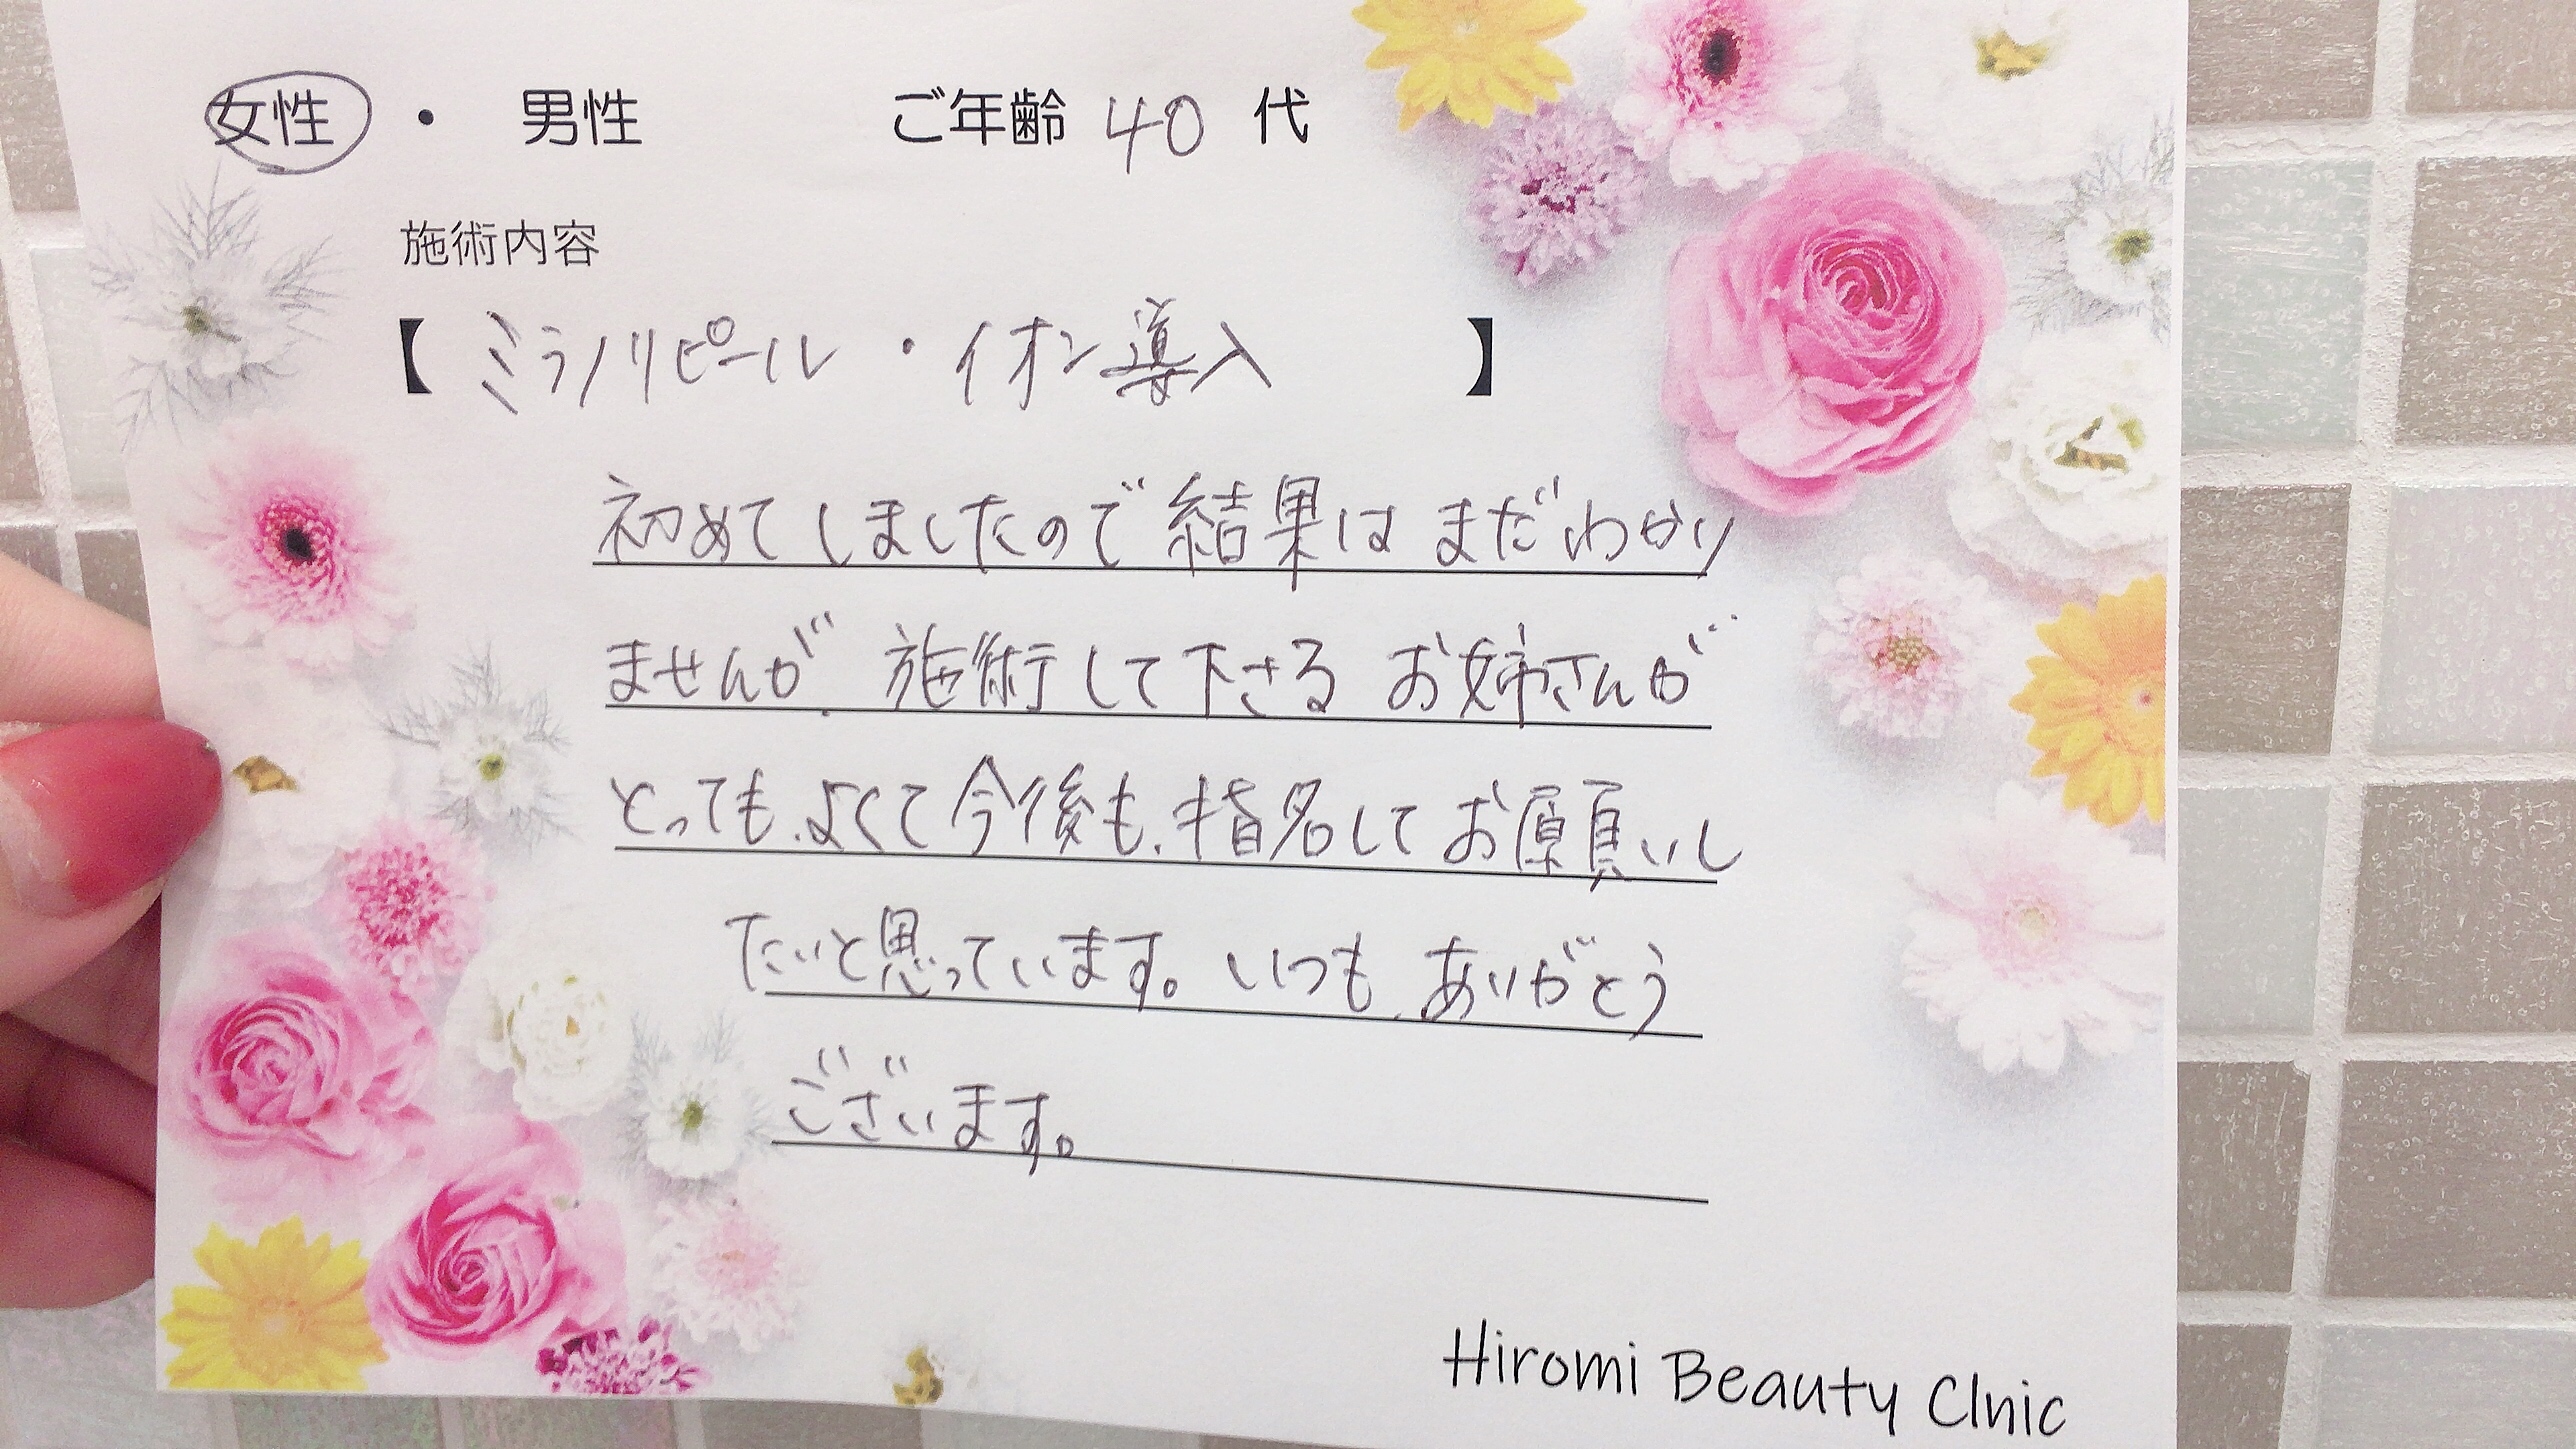 女性 ・ 男性 ご年齢 40 代
施術内容
【 ミラノリピール ・イオン導入 】
初めてしましたので結果は まだわかり
ませんが、施術して下さる お姉さんが
とっても、よくて今後も、指名して お願いし
たいと思っています。いつも、ありがとう
ございます。
Hiromi Beauty Clnic